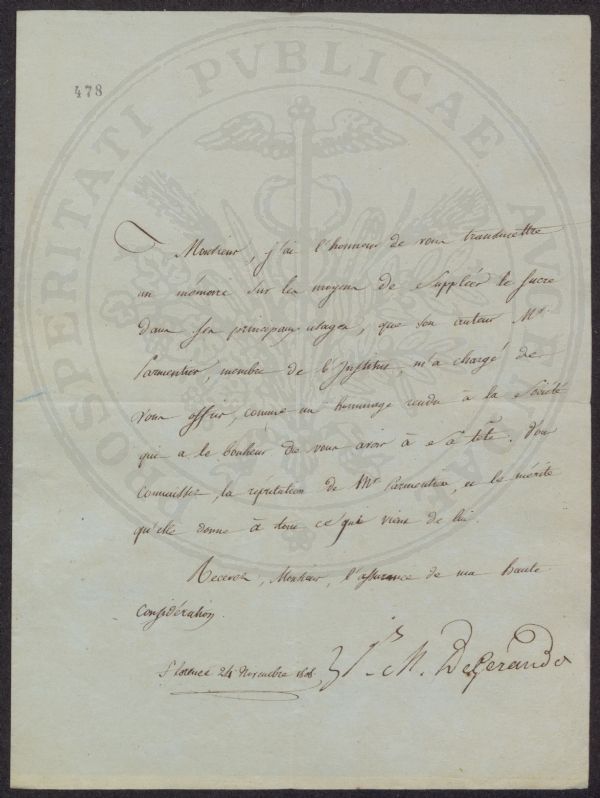 478
Monsieur, j'ai l'honneur de vous transmettre
un mémoire sur les moyens de Suppléer le Sucre
dans ses principaux usages, que son auteur Mr.
Parmentier, membre de l'Institut, m'a chargé de
vous offrir, comme un hommage rendu à la Société
qui a le bonheur de vous avoir à Sa tête. Vous
connaissez, la réputation de Mr. Parmentier, et le mérite
qu'elle donne à tout ce qui vient de lui.
Recevez, Monsieur, l'assurance de ma haute
considération.
Florence 24 Novembre 1808. Jh. M. DeGérando
PROSPERITATI PVBLICAE AVGENDAE